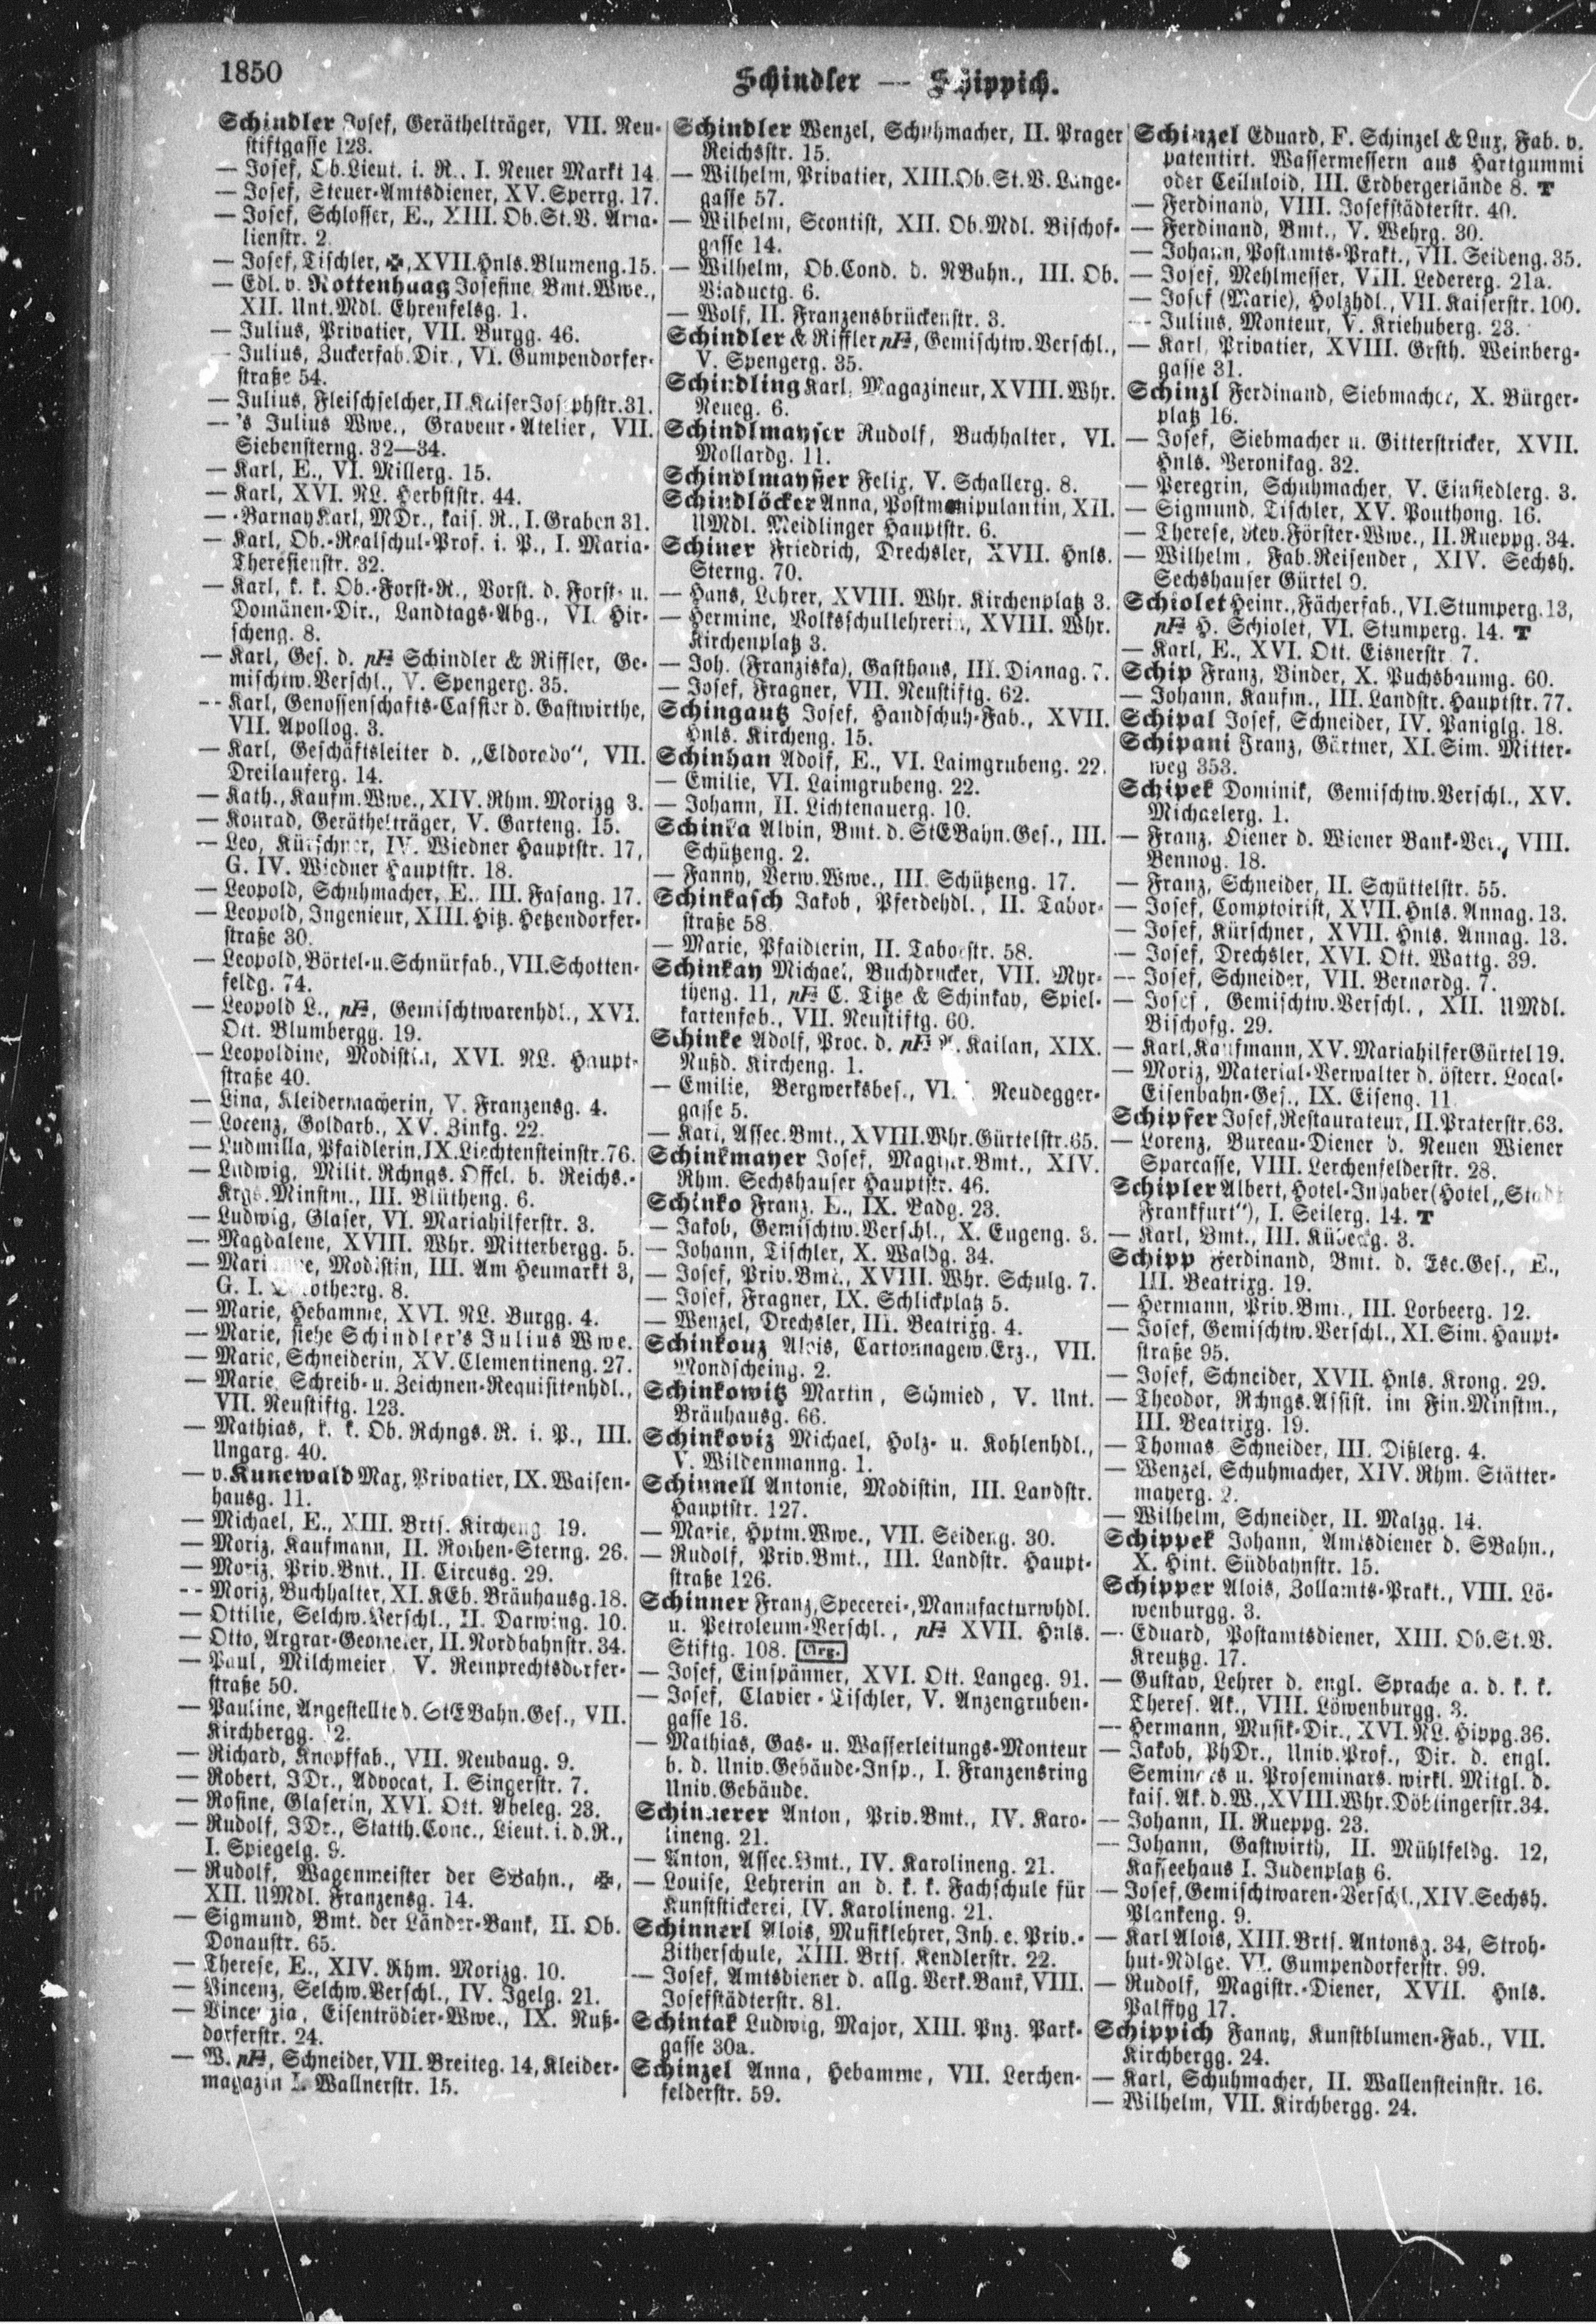 1850
Schindler — Schippich.
Schindler Josef, Geräthelträger, VII. Neu-
stiftgasse 123.
— Josef, Ob.Lieut. i. R., I. Neuer Markt 14
— Josef, Steuer-Amtsdiener, XV. Sperrg. 17.
— Josef, Schlosser, E., XIII. Ob.St.V. Ama-
lienstr. 2.
— Josef, Tischler, ✠, XVII.Hnls.Blumeng.15.
— Edl. v. Rottenhaag Josefine, Bmt.Wwe.,
XII. Unt.Mdl. Ehrenfelsg. 1.
— Julius, Privatier, VII. Burgg. 46.
— Julius, Zuckerfab.Dir., VI. Gumpendorfer-
straße 54.
— Julius, Fleischselcher, II.KaiserJosephstr.31.
— 's Julius Wwe., Graveur-Atelier, VII.
Siebensterng. 32—34.
— Karl, E., VI. Millerg. 15.
— Karl, XVI. NL. Herbststr. 44.
— -Barnay Karl, MDr., kais. R., I. Graben 31.
— Karl, Ob.-Realschul-Prof. i. P., I. Maria-
Theresienstr. 32.
— Karl, k. k. Ob.-Forst-R., Vorst. d. Forst- u.
Domänen-Dir., Landtags-Abg., VI. Hir-
scheng. 8.
— Karl, Ges. d. pF: Schindler & Riffler, Ge-
mischtw.Verschl., V. Spengerg. 35.
— Karl, Genossenschafts-Cassier d. Gastwirthe,
VII. Apollog. 3.
— Karl, Geschäftsleiter d. „Eldorado“, VII.
Dreilauferg. 14.
— Kath., Kaufm.Wwe., XIV. Rhm. Morizg 3.
— Konrad, Geräthelträger, V. Garteng. 15.
— Leo, Kürschner, IV. Wiedner Hauptstr. 17,
G. IV. Wiedner Hauptstr. 18.
— Leopold, Schuhmacher, E., III. Fasang. 17.
— Leopold, Ingenieur, XIII. Hitz. Hetzendorfer-
straße 30.
— Leopold, Börtel-u.Schnürfab., VII.Schotten-
feldg. 74.
— Leopold L., pF:, Gemischtwarenhdl., XVI.
Ott. Blumbergg. 19.
— Leopoldine, Modistin, XVI. NL. Haupt-
straße 40.
— Lina, Kleidermacherin, V. Franzensg. 4.
— Lorenz, Goldarb., XV. Zinkg. 22.
— Ludmilla, Pfaidlerin, IX.Liechtensteinstr.76.
— Ludwig, Milit. Rchngs. Offcl. b. Reichs.-
Krgs.Minstm., III. Blütheng. 6.
— Ludwig, Glaser, VI. Mariahilferstr. 3.
— Magdalene, XVIII. Whr. Mitterbergg. 5.
— Marianne, Modistin, III. Am Heumarkt 3,
G. I. Dorotheerg. 8.
— Marie, Hebamme, XVI. NL. Burgg. 4.
— Marie, siehe Schindler's Julius Wwe.
— Marie, Schneiderin, XV. Clementineng. 27.
— Marie, Schreib- u. Zeichnen-Requisitenhdl.,
VII. Neustiftg. 123.
— Mathias, k. k. Ob. Rchngs. R. i. P., III.
Ungarg. 40.
— v. Kunewald Max, Privatier, IX. Waisen-
hausg. 11.
— Michael, E., XIII. Brtf. Kircheng 19.
— Moriz, Kaufmann, II. Rothen-Sterng. 26.
— Moriz, Priv.Bmt., II. Circusg. 29.
— Moriz, Buchhalter, XI. KEb. Bräuhausg.18.
— Ottilie, Selchw.Verschl., II. Darwing. 10.
— Otto, Argrar-Geometer, II. Nordbahnstr. 34.
— Paul, Milchmeier, V. Reinprechtsdorfer-
straße 50.
— Pauline, Angestellte d. StEBahn.Ges., VII.
Kirchbergg. 2.
— Richard, Knopffab., VII. Neubaug. 9.
— Robert, JDr., Advocat, I. Singerstr. 7.
— Rosine, Glaserin, XVI. Ott. Abeleg. 23.
— Rudolf, JDr., Statth.Conc., Lieut. i. d.R.,
I. Spiegelg. 9.
— Rudolf, Wagenmeister der SBahn., ✠,
XII. UMdl. Franzensg. 14.
— Sigmund, Bmt. der Länder-Bank, II. Ob.
Donaustr. 65.
— Therese, E., XIV. Rhm. Morizg. 10.
— Vincenz, Selchw.Verschl., IV. Igelg. 21.
— Vincenzia, Eisentrödler-Wwe., IX. Nuß-
dorferstr. 24.
— W. pF:, Schneider, VII. Breiteg. 14, Kleider-
magazin I. Wallnerstr. 15.
Schindler Wenzel, Schuhmacher, II. Prager
Reichsstr. 15.
— Wilhelm, Privatier, XIII.Ob.St.V. Lange-
gasse 57.
— Wilhelm, Scontist, XII. Ob.Mdl. Bischof-
gasse 14.
— Wilhelm, Ob.Cond. d. NBahn., III. Ob.
Viaductg. 6.
— Wolf, II. Franzensbrückenstr. 3.
Schindler & Riffler pF:, Gemischtw.Verschl.,
V. Spengerg. 35.
Schindling Karl, Magazineur, XVIII. Whr.
Neueg. 6.
Schindlmayser Rudolf, Buchhalter, VI.
Mollardg. 11.
Schindlmaysser Felix, V. Schallerg. 8.
Schindlöcker Anna, Postmanipulantin, XII.
UMdl. Meidlinger Hauptstr. 6.
Schiner Friedrich, Drechsler, XVII. Hnls.
Sterng. 70.
— Hans, Lehrer, XVIII. Whr. Kirchenplatz 3.
— Hermine, Volksschullehrerin, XVIII. Whr.
Kirchenplatz 3.
— Joh. (Franziska), Gasthaus, III. Dianag. 7.
— Josef, Fragner, VII. Neustiftg. 62.
Schingautz Josef, Handschuh-Fab., XVII.
Hnls. Kircheng. 15.
Schinhan Adolf, E., VI. Laimgrubeng. 22.
— Emilie, VI. Laimgrubeng. 22.
— Johann, II. Lichtenauerg. 10.
Schinka Albin, Bmt. d. StEBahn.Ges., III.
Schützeng. 2.
— Fanny, Verw.Wwe., III. Schützeng. 17.
Schinkasch Jakob, Pferdehdl., II. Tabor-
straße 58.
— Marie, Pfaidlerin, II. Taborstr. 58.
Schinkay Michael, Buchdrucker, VII. Myr-
theng. 11, pF: C. Titze & Schinkay, Spiel-
kartenfab., VII. Neustiftg. 60.
Schinke Adolf, Proc. d. pF: Kailan, XIX.
Nußd. Kircheng. 1.
— Emilie, Bergwerksbes., Neudegger-
gasse 5.
— Karl, Assec.Bmt., XVIII.Whr.Gürtelstr.65.
Schinkmayer Josef, Magistr.Bmt., XIV.
Rhm. Sechshauser Hauptstr. 46.
Schinko Franz, E., IX. Badg. 23.
— Jakob, Gemischtw.Verschl., X. Eugeng. 3.
— Johann, Tischler, X. Waldg. 34.
— Josef, Priv.Bmt., XVIII. Whr. Schulg. 7.
— Josef, Fragner, IX. Schlickplatz 5.
— Wenzel, Drechsler, III. Beatrixg. 4.
Schinkouz Alois, Cartonnagew.Erz., VII.
Mondscheing. 2.
Schinkowitz Martin, Schmied, V. Unt.
Bräuhausg. 66.
Schinkoviz Michael, Holz- u. Kohlenhdl.,
V. Wildenmanng. 1.
Schinnell Antonie, Modistin, III. Landstr.
Hauptstr. 127.
— Marie, Hptm.Wwe., VII. Seideng. 30.
— Rudolf, Priv.Bmt., III. Landstr. Haupt-
straße 126.
Schinner Franz, Specerei-, Manufacturwhdl.
u. Petroleum-Verschl., pF: XVII. Hnls.
Stiftg. 108. Clrg.
— Josef, Einspänner, XVI. Ott. Langeg. 91.
— Josef, Clavier-Tischler, V. Anzengruben-
gasse 16.
— Mathias, Gas- u. Wasserleitungs-Monteur
b. d. Univ.Gebäude-Insp., I. Franzensring
Univ.Gebäude.
Schinnerer Anton, Priv.Bmt., IV. Karo-
lineng. 21.
— Anton, Assec.Bmt., IV. Karolineng. 21.
— Louise, Lehrerin an d. k. k. Fachschule für
Kunststickerei, IV. Karolineng. 21.
Schinnerl Alois, Musiklehrer, Inh. e. Priv.-
Zitherschule, XIII. Brtf. Kendlerstr. 22.
— Josef, Amtsdiener d. allg. Verk.Bank, VIII.
Josefstädterstr. 81.
Schintak Ludwig, Major, XIII. Pnz. Park-
gasse 30a.
Schinzel Anna, Hebamme, VII. Lerchen-
felderstr. 59.
Schinzel Eduard, F. Schinzel & Lux, Fab. v.
patentirt. Wassermessern aus Hartgummi
oder Celluloid, III. Erdbergerlände 8. T
— Ferdinand, VIII. Josefstädterstr. 40.
— Ferdinand, Bmt., V. Wehrg. 30.
— Johann, Postamts-Prakt., VII. Seideng. 35.
— Josef, Mehlmesser, VIII. Ledererg. 21a.
— Josef (Marie), Holzhdl., VII. Kaiserstr. 100.
— Julius, Monteur, V. Kriehuberg. 23.
— Karl, Privatier, XVIII. Grsth. Weinberg-
gasse 31.
Schinzl Ferdinand, Siebmacher, X. Bürger-
platz 16.
— Josef, Siebmacher u. Gitterstricker, XVII.
Hnls. Veronikag. 32.
— Peregrin, Schuhmacher, V. Einsiedlerg. 3.
— Sigmund, Tischler, XV. Pouthong. 16.
— Therese, Rev.Förster-Wwe., II. Rueppg. 34.
— Wilhelm, Fab.Reisender, XIV. Sechsh.
Sechshauser Gürtel 9.
Schiolet Heinr., Fächerfab., VI.Stumperg.13,
pF: H. Schiolet, VI. Stumperg. 14. T
— Karl, E., XVI. Ott. Eisnerstr. 7.
Schip Franz, Binder, X. Puchsbaumg. 60.
— Johann, Kaufm., III. Landstr. Hauptstr. 77.
Schipal Josef, Schneider, IV. Paniglg. 18.
Schipani Franz, Gärtner, XI. Sim. Mitter-
weg 353.
Schipek Dominik, Gemischtw.Verschl., XV.
Michaelerg. 1.
— Franz, Diener d. Wiener Bank-Ver., VIII.
Bennog. 18.
— Franz, Schneider, II. Schüttelstr. 55.
— Josef, Comptoirist, XVII. Hnls. Annag. 13.
— Josef, Kürschner, XVII. Hnls. Annag. 13.
— Josef, Drechsler, XVI. Ott. Wattg. 39.
— Josef, Schneider, VII. Bernardg. 7.
— Josef, Gemischtw.Verschl., XII. UMdl.
Bischofg. 29.
— Karl, Kaufmann, XV. MariahilferGürtel 19.
— Moriz, Material-Verwalter d. österr. Local-
Eisenbahn-Ges., IX. Eiseng. 11
Schipfer Josef, Restaurateur, II.Praterstr.63.
— Lorenz, Bureau-Diener d. Neuen Wiener
Sparcasse, VIII. Lerchenfelderstr. 28.
Schipler Albert, Hotel-Inhaber (Hotel „Stadt
Frankfurt“), I. Seilerg. 14. T
— Karl, Bmt., III. Kübeckg. 3.
Schipp Ferdinand, Bmt. d. Esc.Ges., E.,
III. Beatrixg. 19.
— Hermann, Priv.Bmt., III. Lorbeerg. 12.
— Josef, Gemischtw.Verschl., XI. Sim. Haupt-
straße 95.
— Josef, Schneider, XVII. Hnls. Krong. 29.
— Theodor, Rchngs.Assist. im Fin.Minstm.,
III. Beatrixg. 19.
— Thomas, Schneider, III. Dißlerg. 4.
— Wenzel, Schuhmacher, XIV. Rhm. Stätter-
mayerg. 2.
— Wilhelm, Schneider, II. Malzg. 14.
Schippek Johann, Amtsdiener d. SBahn.,
X. Hint. Südbahnstr. 15.
Schipper Alois, Zollamts-Prakt., VIII. Lö-
wenburgg. 3.
— Eduard, Postamtsdiener, XIII. Ob.St.V.
Kreutzg. 17.
— Gustav, Lehrer d. engl. Sprache a. d. k. k.
Theres. Ak., VIII. Löwenburgg. 3.
— Hermann, Musik-Dir., XVI. NL. Hippg.36.
— Jakob, PhDr., Univ.Prof., Dir. d. engl.
Seminars u. Proseminars, wirkl. Mitgl. d.
kais. Ak. d. W., XVIII.Whr.Döblingerstr.34.
— Johann, II. Rueppg. 23.
— Johann, Gastwirth, II. Mühlfeldg. 12,
Kaffeehaus I. Judenplatz 6.
— Josef, Gemischtwaren-Verschl., XIV. Sechsh.
Plankeng. 9.
— Karl Alois, XIII.Brtf. Antonsg. 34, Stroh-
hut-Ndlge. VI. Gumpendorferstr. 99.
— Rudolf, Magistr.-Diener, XVII. Hnls.
Palffyg 17.
Schippich Fanny, Kunstblumen-Fab., VII.
Kirchbergg. 24.
— Karl, Schuhmacher, II. Wallensteinstr. 16.
— Wilhelm, VII. Kirchbergg. 24.